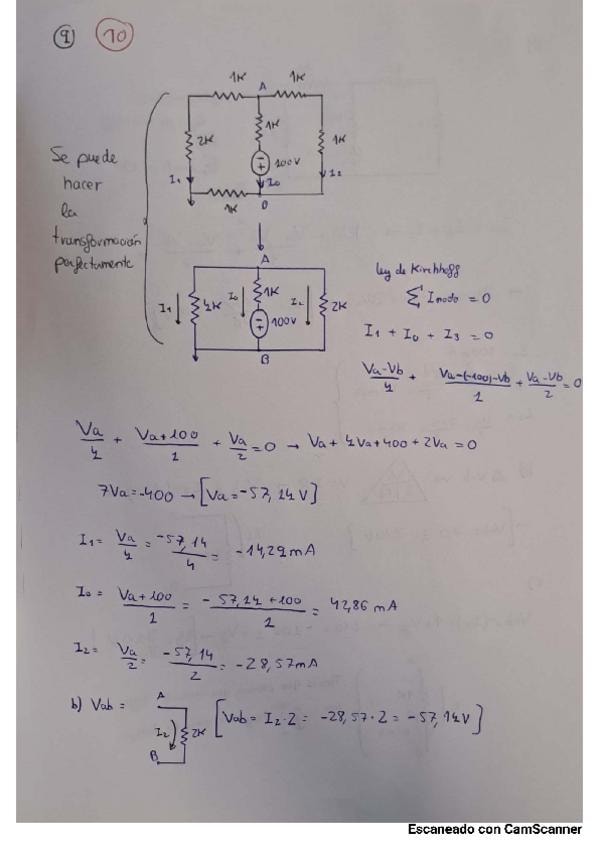 9 10
1K A 1K
2K 1K 1K
100V
I1 I0 I2
1K 0
Se puede
hacer
la
transformación
perfectamente
A
I1 4K I0 1K I2 2K
100V
B
ley de Kirchhoff
Σ Inodo = 0
I1 + I0 + I3 = 0
Va-Vb/4 + Va-(-100)-Vb/1 + Va-Vb/2 = 0
Va/4 + Va+100/1 + Va/2 = 0 → Va + 4Va + 400 + 2Va = 0
7Va = -400 → [Va = -57,14 V]
I1 = Va/4 = -57,14/4 = -14,29 mA
I0 = Va+100/1 = -57,14 +100/1 = 42,86 mA
I2 = Va/2 = -57,14/2 = -28,57 mA
b) Vab = A I2 2K B [Vab = I2 · 2 = -28,57 · 2 = -57,14V]
Escaneado con CamScanner